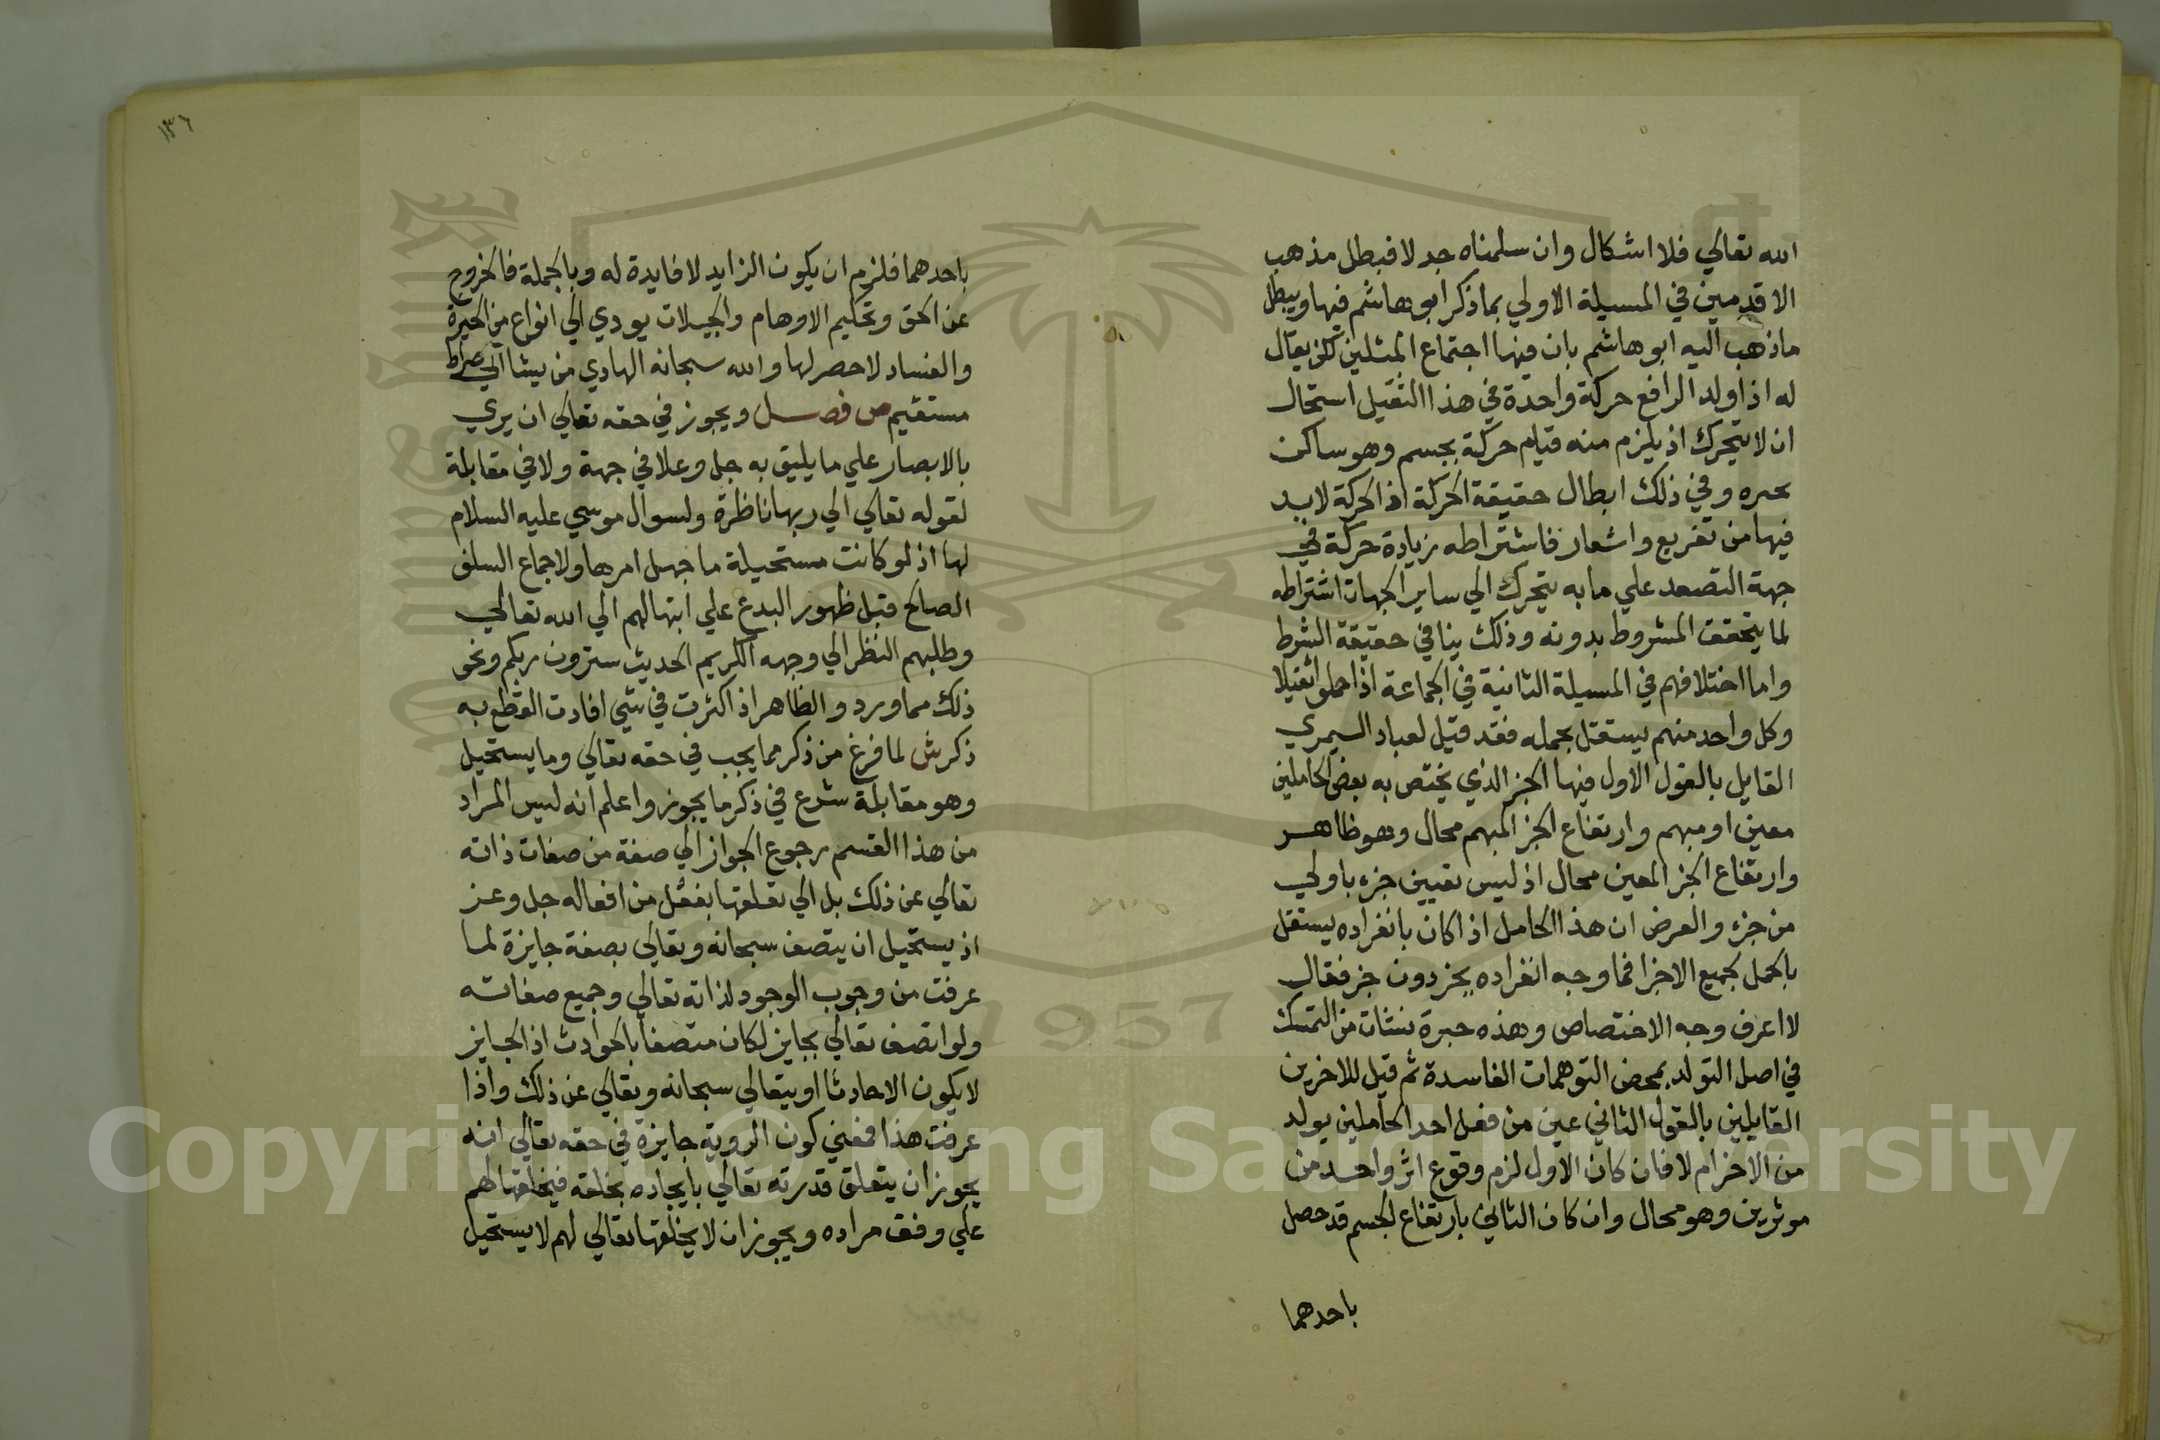 الله تعالي فلا اشكال وان سلمناه جدلا فبطل مذهب
الاقدمين في المسيلة الاولي بما ذكر ابو هاشم فيها ويبطل
ما ذهب اليه ابو هاشم بان فيها اجتماع المثلين لكن يقال
له اذا ولد الرافع حركة واحدة في هذا الثقيل استحال
ان لا يتحرك اذ يلزم منه قيام حركة بجسم وهو ساكن
وفي ذلك ابطال حقيقة الحركة اذ الحركة لا بد
فيها من تفريع واشعار فاشتراطه زيادة حركة في
جهة التصعد علي ما به يتحرك الي ساير الجهات اشتراطه
لما يتحقق المشروط بدونه وذلك ينافي حقيقة الشرط
واما اختلافهم في المسيلة الثانية في الجماعة اذا حملوا ثقيلا
وكل واحد منهم يستقل بحمله فقد قيل لعباد السيمري
القايل بالقول الاول فيها الجز الذي يختص به بعض الحاملين
معين او مبهم وارتفاع الجز المبهم محال وهو ظاهر
وارتفاع الجز المعين محال اذ ليس تعيين جزء باولي
من جزء والعرض ان هذا الحامل اذا كان بانفراده يستقل
بالحمل لجميع الاجزا فما وجه انفراده بجز دون جز فقال
لا اعرف وجه الاختصاص وهذه حيرة نشات من التمسك
في اصل التولد بمحض التوهمات الفاسدة ثم قيل للاخرين
القايلين بالقول الثاني عين من فعل احد الحاملين يولد
من الاخر ام لا فان كان الاول لزم وقوع اثر واحد من
موثرين وهو محال وان كان الثاني بارتفاع الجسم قد حصل
باحدهما
١٣٦
باحدهما فلزم ان يكون الزايد لا فايدة له وبالجملة فالخروج
عن الحق وتحكيم الاوهام والخيلات يودي الي انواع من الحيرة
والفساد لا حصر لها والله سبحانه الهادي من يشا الي صراط
مستقيم ص فصل ويجوز في حقه تعالي ان يري
بالابصار علي ما يليق به جل وعلا في جهة ولا في مقابلة
لقوله تعالي الي ربها ناظرة ولسوال موسي عليه السلام
لها اذ لو كانت مستحيلة ما جهل امرها ولاجماع السلف
الصالح قبل ظهور البدع علي ابتهالهم الي الله تعالي
وطلبهم النظر الي وجهه الكريم الحديث سترون ربكم ونحو
ذلك مما ورد والظاهر اذ اكثرت في شي افادت القطع به
ذكر ش لما فرغ من ذكر مما يجب في حقه تعالي وما يستحيل
وهو مقابلة شرع في ذكر ما يجوز واعلم انه ليس المراد
من هذا القسم رجوع الجواز الي صفة من صفات ذاته
تعالي عن ذلك بل الي تعلقها بفعل من افعاله جل وعز
اذ يستحيل ان يتصف سبحانه وتعالي بصفة جايزة لما
عرفت من وجوب الوجود لذاته تعالي وجميع صفاته
ولو اتصف تعالي بجايز لكان متصفا بالحوادث اذ الجايز
لا يكون الا حادثا او يتعالي سبحانه وتعالي عن ذلك واذا
عرفت هذا فمعني كون الروية جايزة في حقه تعالي انه
يجوز ان يتعلق قدرته تعالي بايجاده بخلقه فيخلقها لهم
علي وفق مراده ويجوز ان لا يخلقها تعالي لهم لا يستحيل
1957
Copyright © King Saud University